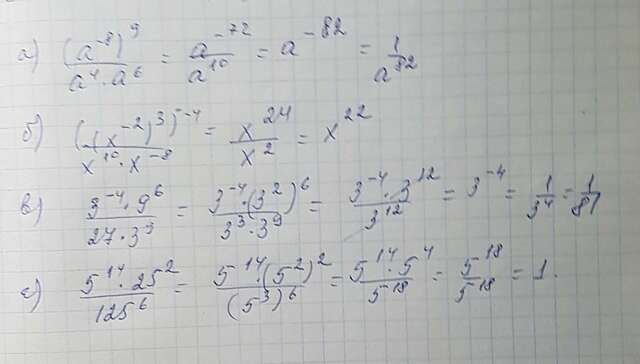 а) (a⁻⁸)⁹ / (a⁴ · a⁶) = a⁻⁷² / a¹⁰ = a⁻⁸² = 1 / a⁸²
б) ((x⁻²)³)⁻⁴ / (x¹⁰ · x⁻⁸) = x²⁴ / x² = x²²
в) (3⁻⁴ · 9⁶) / (27 · 3⁹) = (3⁻⁴ · (3²)⁶) / (3³ · 3⁹) = (3⁻⁴ · 3¹²) / 3¹² = 3⁻⁴ = 1 / 3⁴ = 1 / 81
г) (5¹⁴ · 25²) / 125⁶ = (5¹⁴ · (5²)²) / (5³)⁶ = (5¹⁴ · 5⁴) / 5¹⁸ = 5¹⁸ / 5¹⁸ = 1.